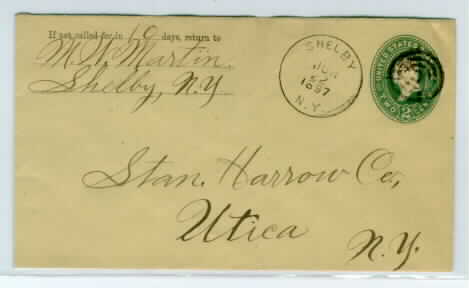 If not called for in 10 days, return to
M. W. Martin
Shelby, N.Y
SHELBY
JUN
1897
N.Y.
UNITED STATES
TWO 2
Stan. Harrow Co,
Utica
N.Y.